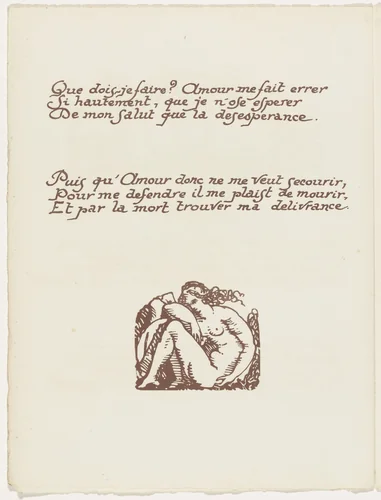 Que dois-je faire? Amour me fait errer
Si hautement, que je n'ose esperer
De mon salut que la desesperance.
Puis qu'Amour donc ne me veut secourir,
Pour me defendre il me plaist de mourir,
Et par la mort trouver ma delivrance.